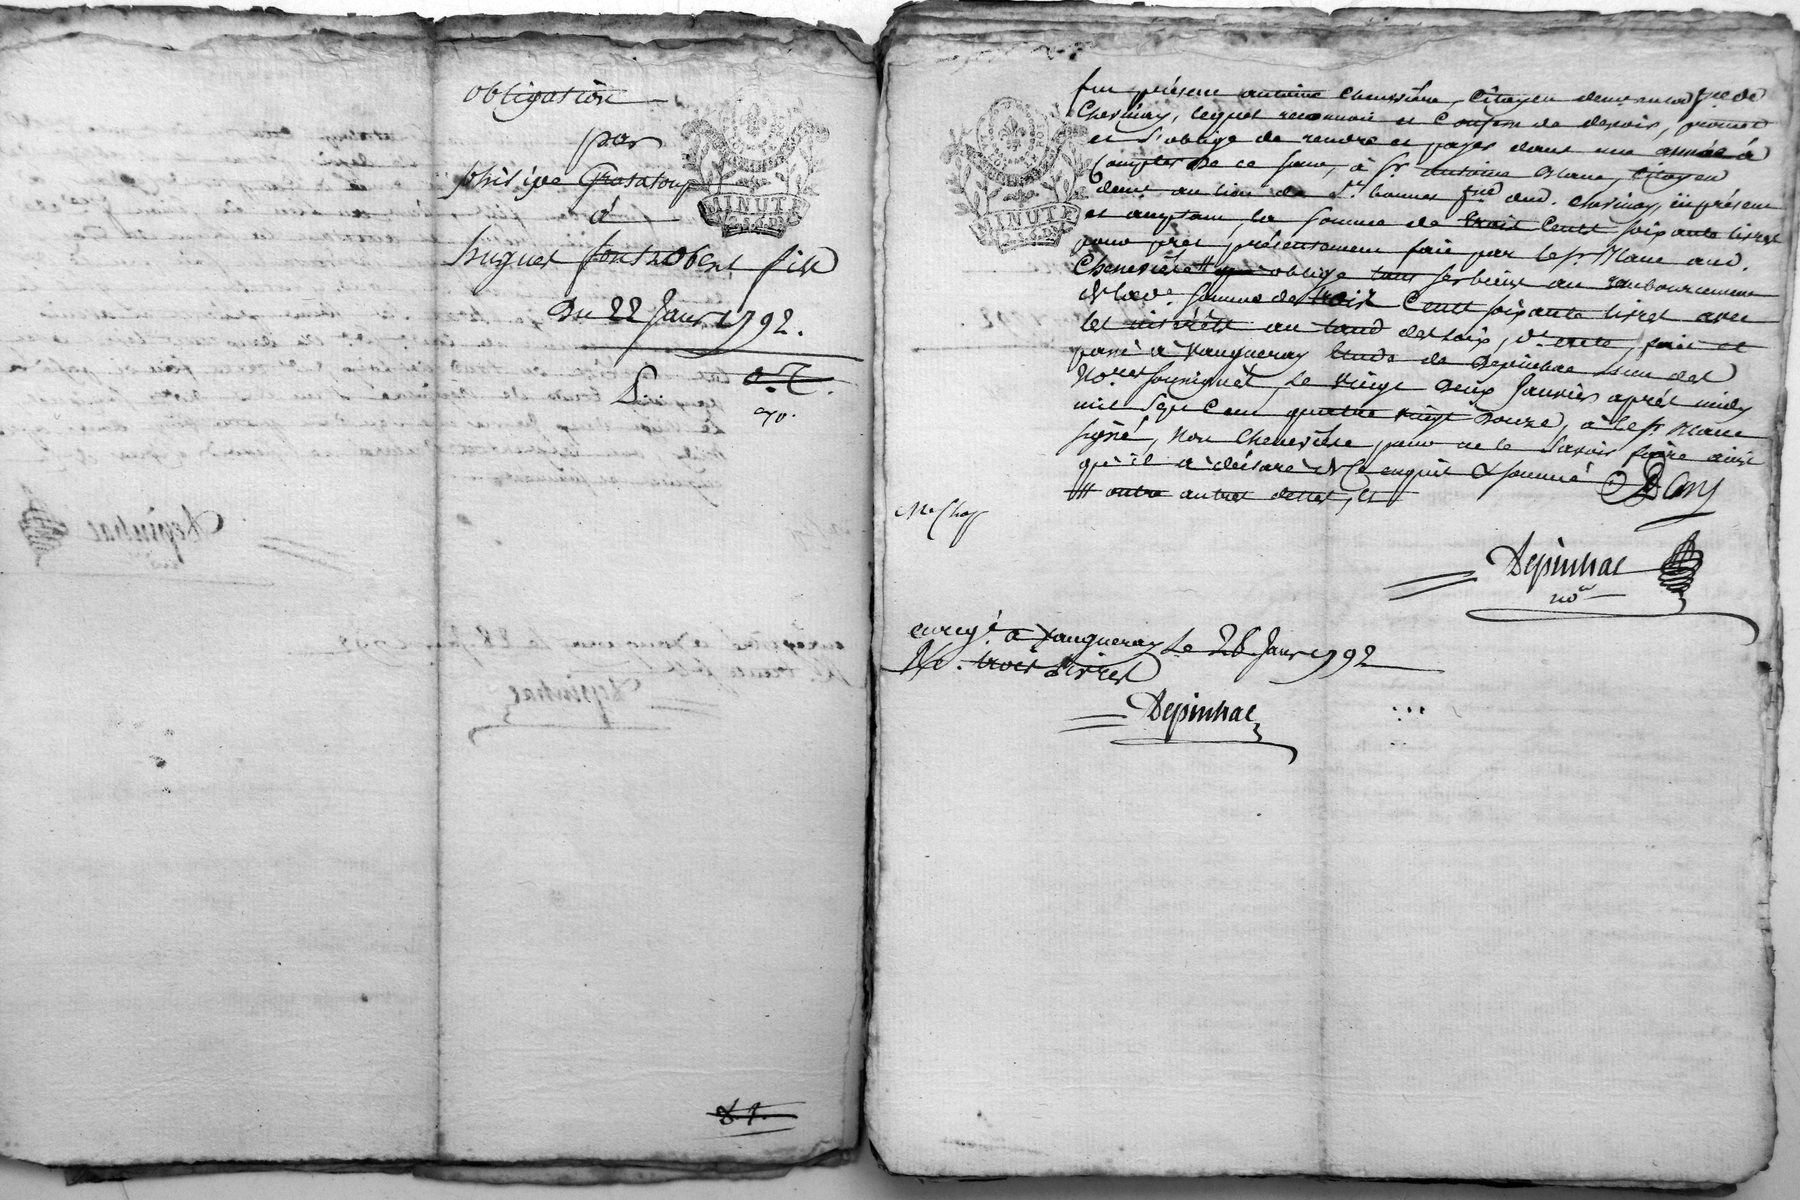 obligation
par
philipe Grataloup
à
hugues fontrobert fils
Du 22 Janr 1792.
MINUTE
fut présent antoine Chenevière, Citoyen demeurant psse de
Chevinay, lequel reconnoit et Confesse de devoir, promet
et s'oblige de rendre et payer dans une année à
Compter de ce jour, à sr antoine Blanc, citoyen
demt au lieu de st bonnet psse dud. chevinay, icy présent
et acceptant, la somme de trois Cents soixante livres
pour prêt présentement fait par le sr Blanc aud.
Chenevière # oblige tous ses biens au remboursement
de lade. somme de trois Cents soixante livres avec
les intérêts au taux des loix, fait et
passé à Vaugneray Etude de Depinhac l'un des
No.res soussignés, le vingt deux Janvier après midy
mil sept Cent quatre vingt douze, a le sr Blanc
signé, non Chenevière pour ne le savoir faire ainsi
qu'il a déclaré de ce enquis & sommé
# outre autres dettes, et
MINUTE
Depinhac
nore
enregé. à Vaugneray le 28 Janr 1792
Rx. trois livres
Depinhac